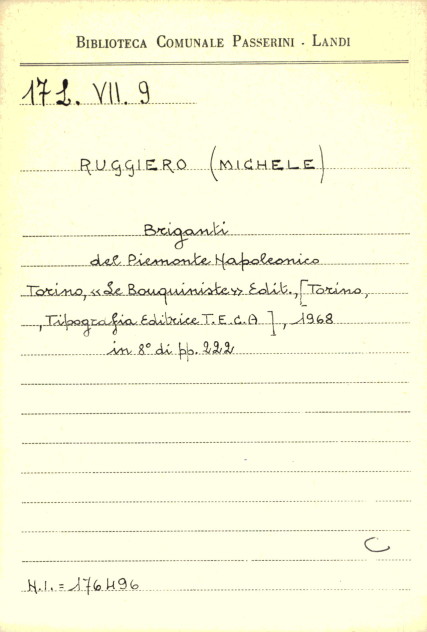 BIBLIOTECA COMUNALE PASSERINI - LANDI
17 L. VII. 9
RUGGIERO (MICHELE)
Briganti
del Piemonte Napoleonico
Torino, «Le Bouquiniste» Edit., [Torino,
, Tipografia Editrice T.E.C.A ], 1968
in 8° di pp. 222
C
N.I. = 176496